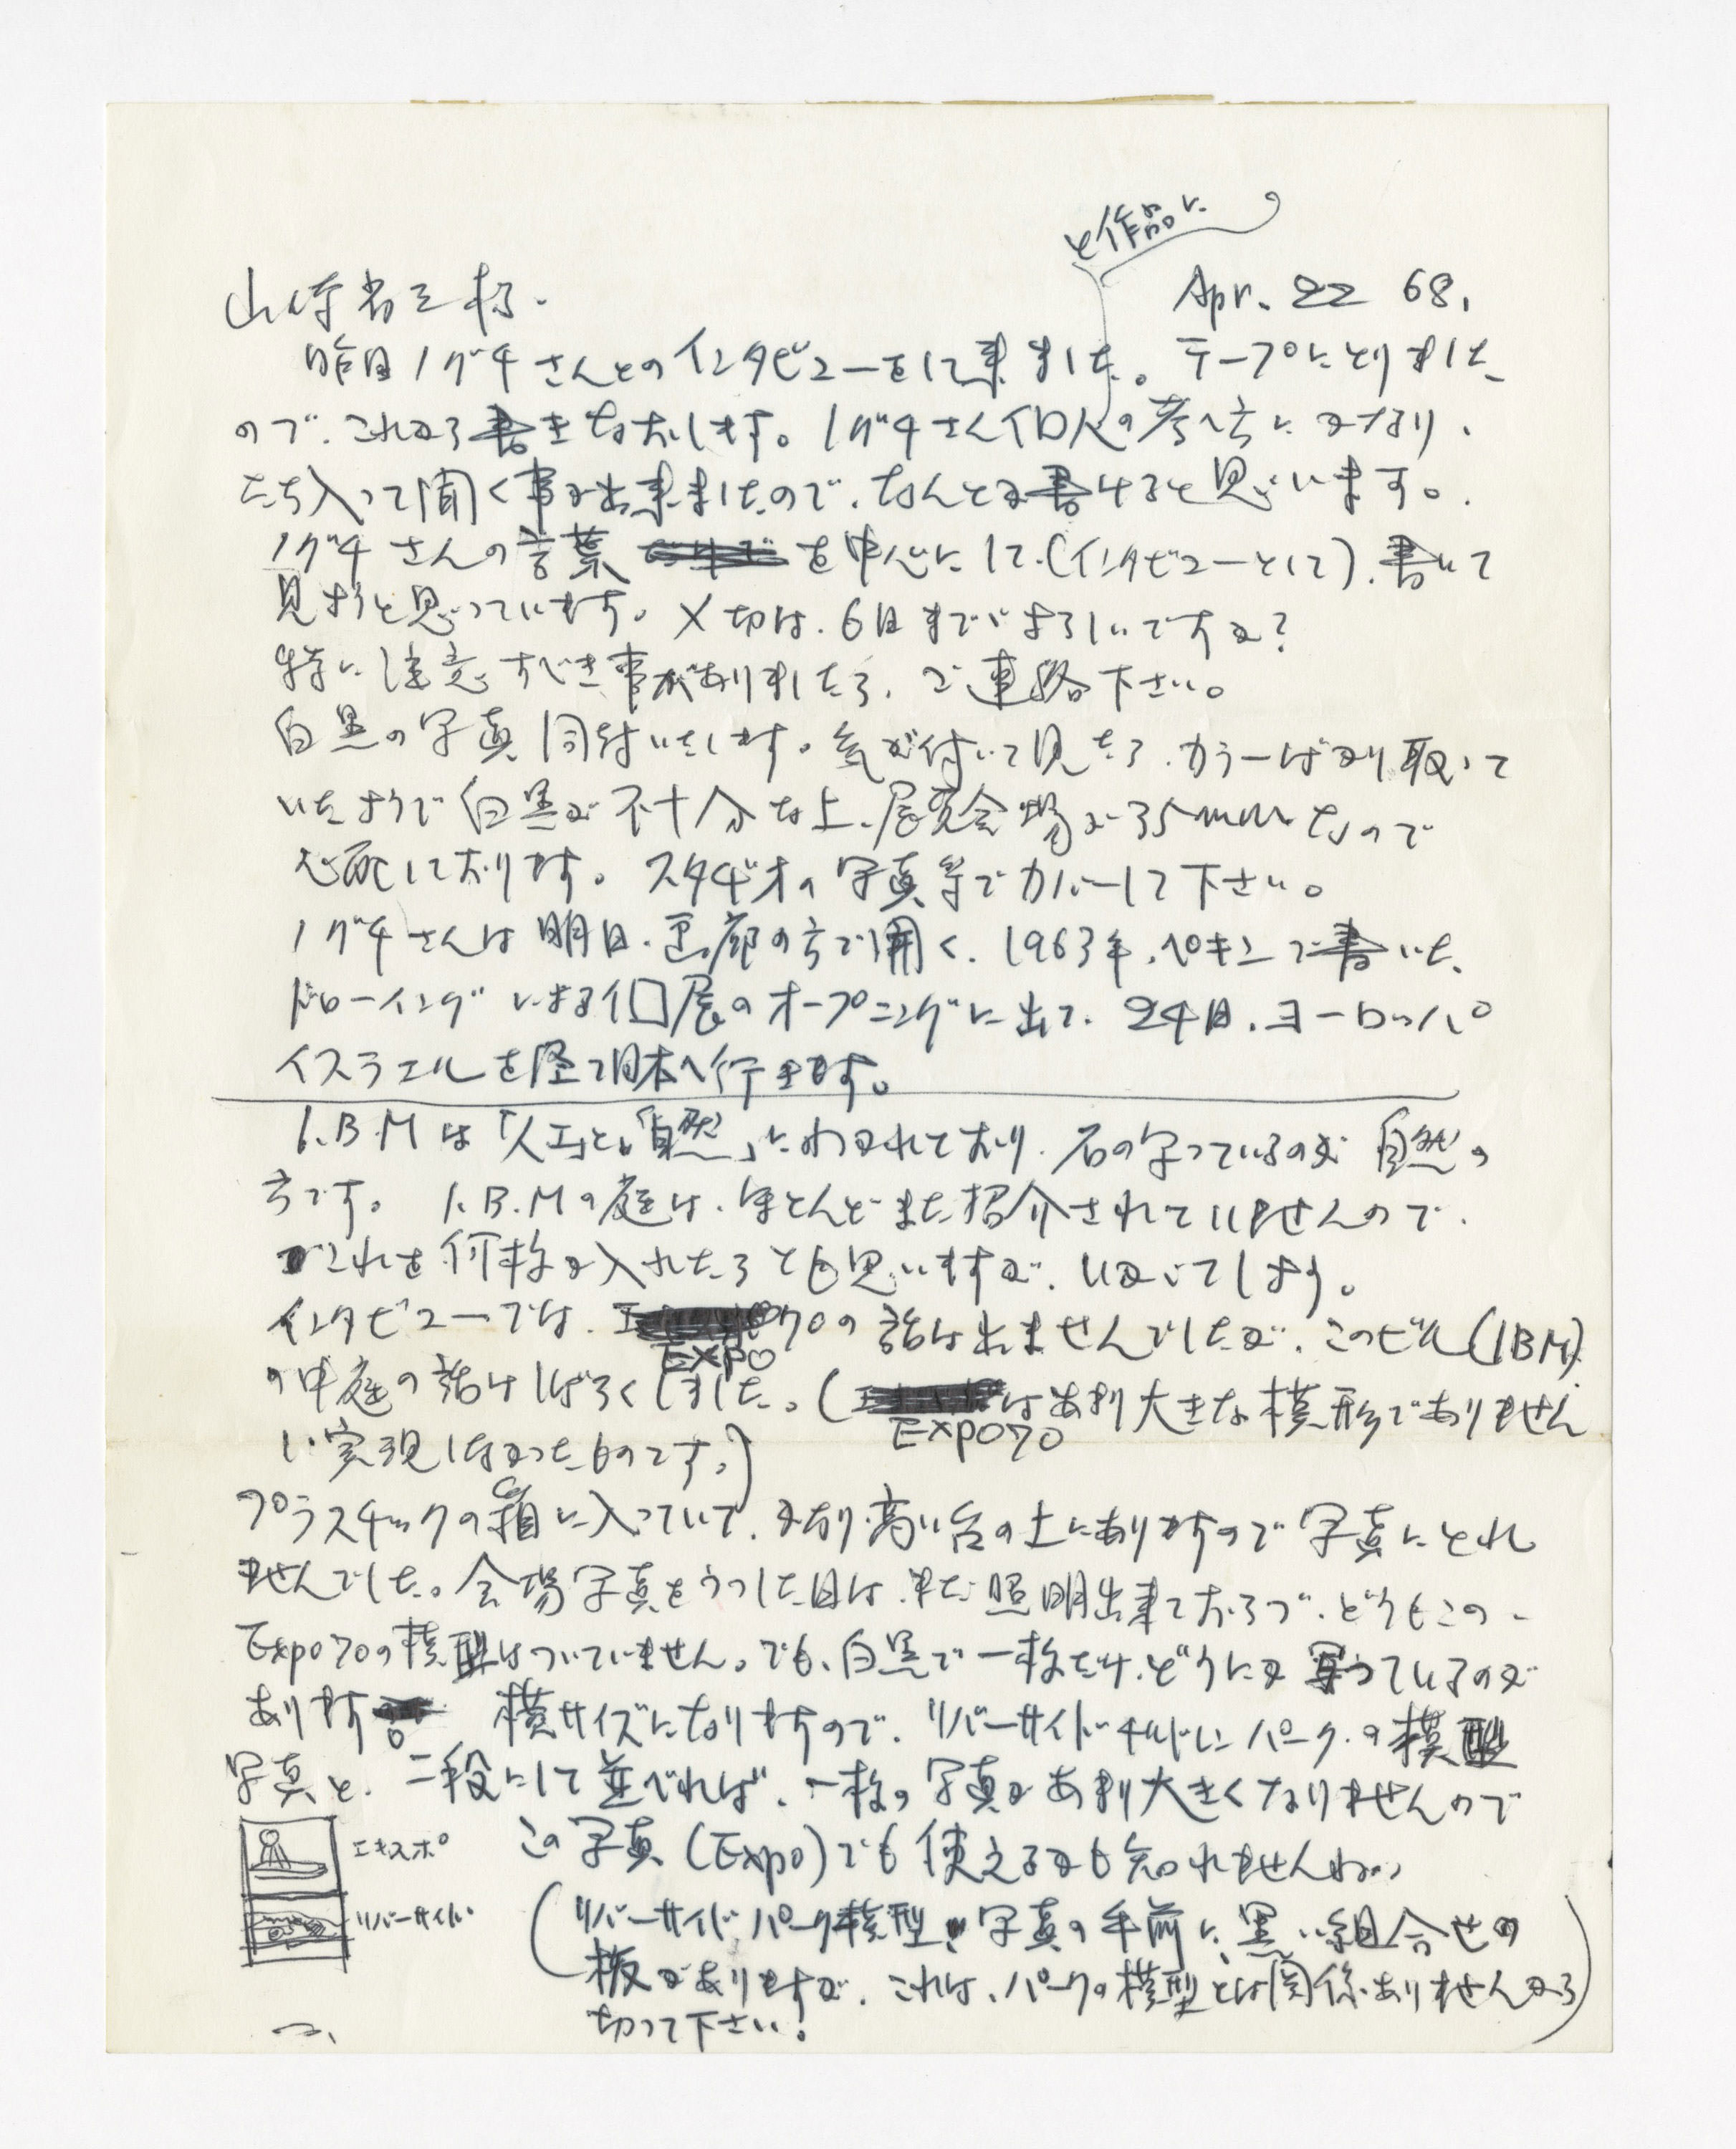 と作品に
Apr. 22 68.
山崎省三様.
昨日ノグチさんとのインタビューをして来ました。テープにとりました
ので、これから書きなおします。ノグチさん個人の考へ方にかなり、
たち入って聞く事が出来ましたので、なんとか書けると思います。
ノグチさんの言葉を中心にして(インタビューとして)、書いて
見ようと思っています。〆切は、6日まででよろしいですか?
特に注意すべき事がありましたら、ご連絡下さい。
白黒の写真同封いたします。気が付いて見たら、カラーばかり取って
いたようで白黒が不十分な上、展覧会場が35mmなので
心配しております。スタヂオの写真等でカバーして下さい。
ノグチさんは明日、画廊の方で開く、1963年、ペキンで書いた、
ドローイングによる個展のオープニングに出て、24日、ヨーロッパ
イスラエルを経て日本へ行きます。
I.B.Mは「人工」と「自然」にわかれており、石の写っているのが自然の
方です。I.B.Mの庭は、ほとんどまだ紹介されていませんので、
これを何枚か入れたらとも思いますが、いかがでしょう。
インタビューでは、EXPO70の話は出ませんでしたが、このビル(IBM)
の中庭の話はしばらくしました。(EXPO70はあまり大きな模形でありません
し、実現しなかったものです。)
プラスチックの箱に入っていて、かなり高い台の上にありますので写真にとれ
ませんでした。会場写真をうつした日は、まだ照明出来ておらづ、どうもこの
Expo70の模型はついていません。でも、白黒で一枚だけ、どうにか写っているのが
あります。横サイズになりますので、リバーサイドチルドレンパークの模型
写真と、二段にして並べれば、一枚の写真があまり大きくなりませんので
この写真(Expo)でも使えるかも知れませんね。
エキスポ
リバーサイド
(リバーサイドパーク模型、写真の手前に、黒い組合せの
板がありますが、これは、パークの模型とは関係ありませんから
切って下さい!)